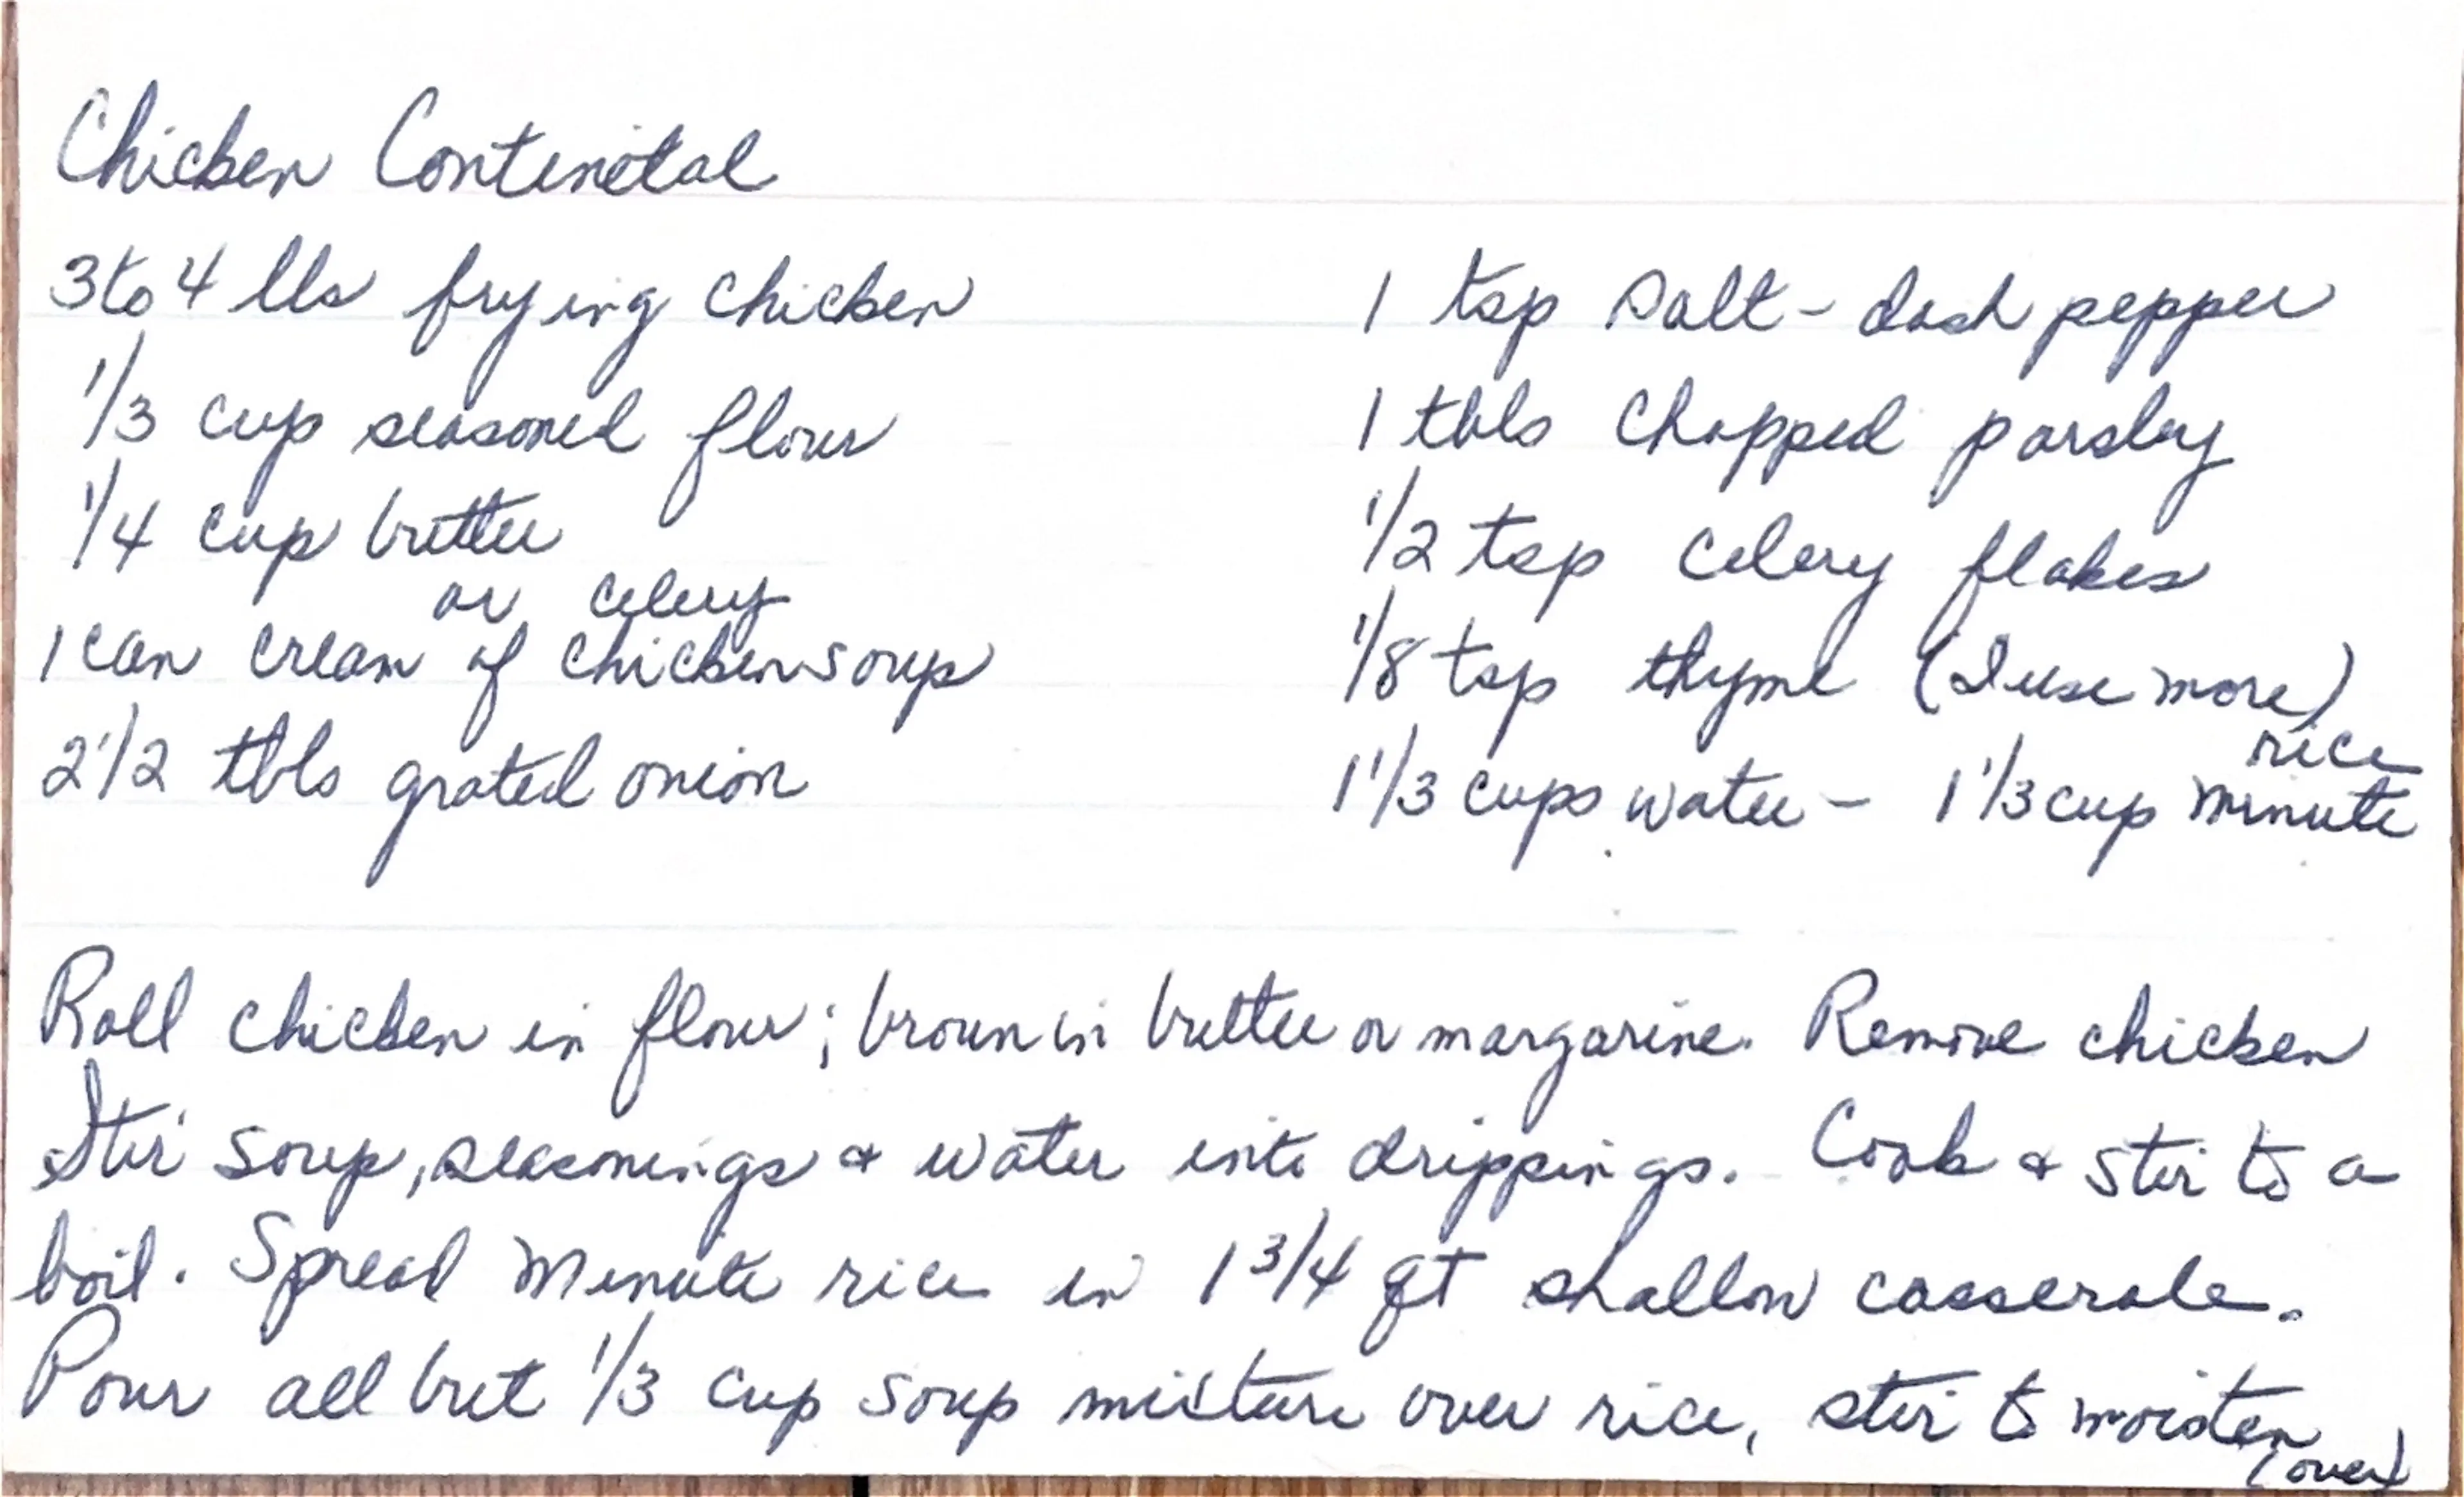 Chicken Continetal
3 to 4 lbs frying chicken
1/3 cup seasoned flour
1/4 cup butter
or celery
1 can cream of chicken soup
2 1/2 tbls grated onion
1 tsp salt - dash pepper
1 tbls chopped parsley
1/2 tsp celery flakes
1/8 tsp thyme (I use more)
rice
1 1/3 cups water - 1 1/3 cup minute
Roll chicken in flour; brown in butter or margarine. Remove chicken
Stir soup, seasonings & water into drippings. Cook & stir to a
boil. Spread minute rice in 1 3/4 qt shallow casserole.
Pour all but 1/3 cup soup mixture over rice, stir to moisten
(over)